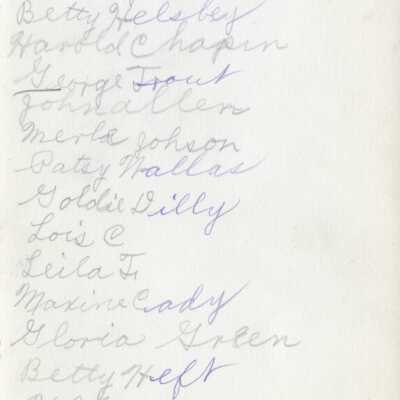 Betty Helsbey
Harold Chapin
George Trout
John allen
Merle Johson
Patsy Wallas
Goldie Dilly
Lois C
Leila F.
Maxine Cady
Gloria Green
Betty Heft